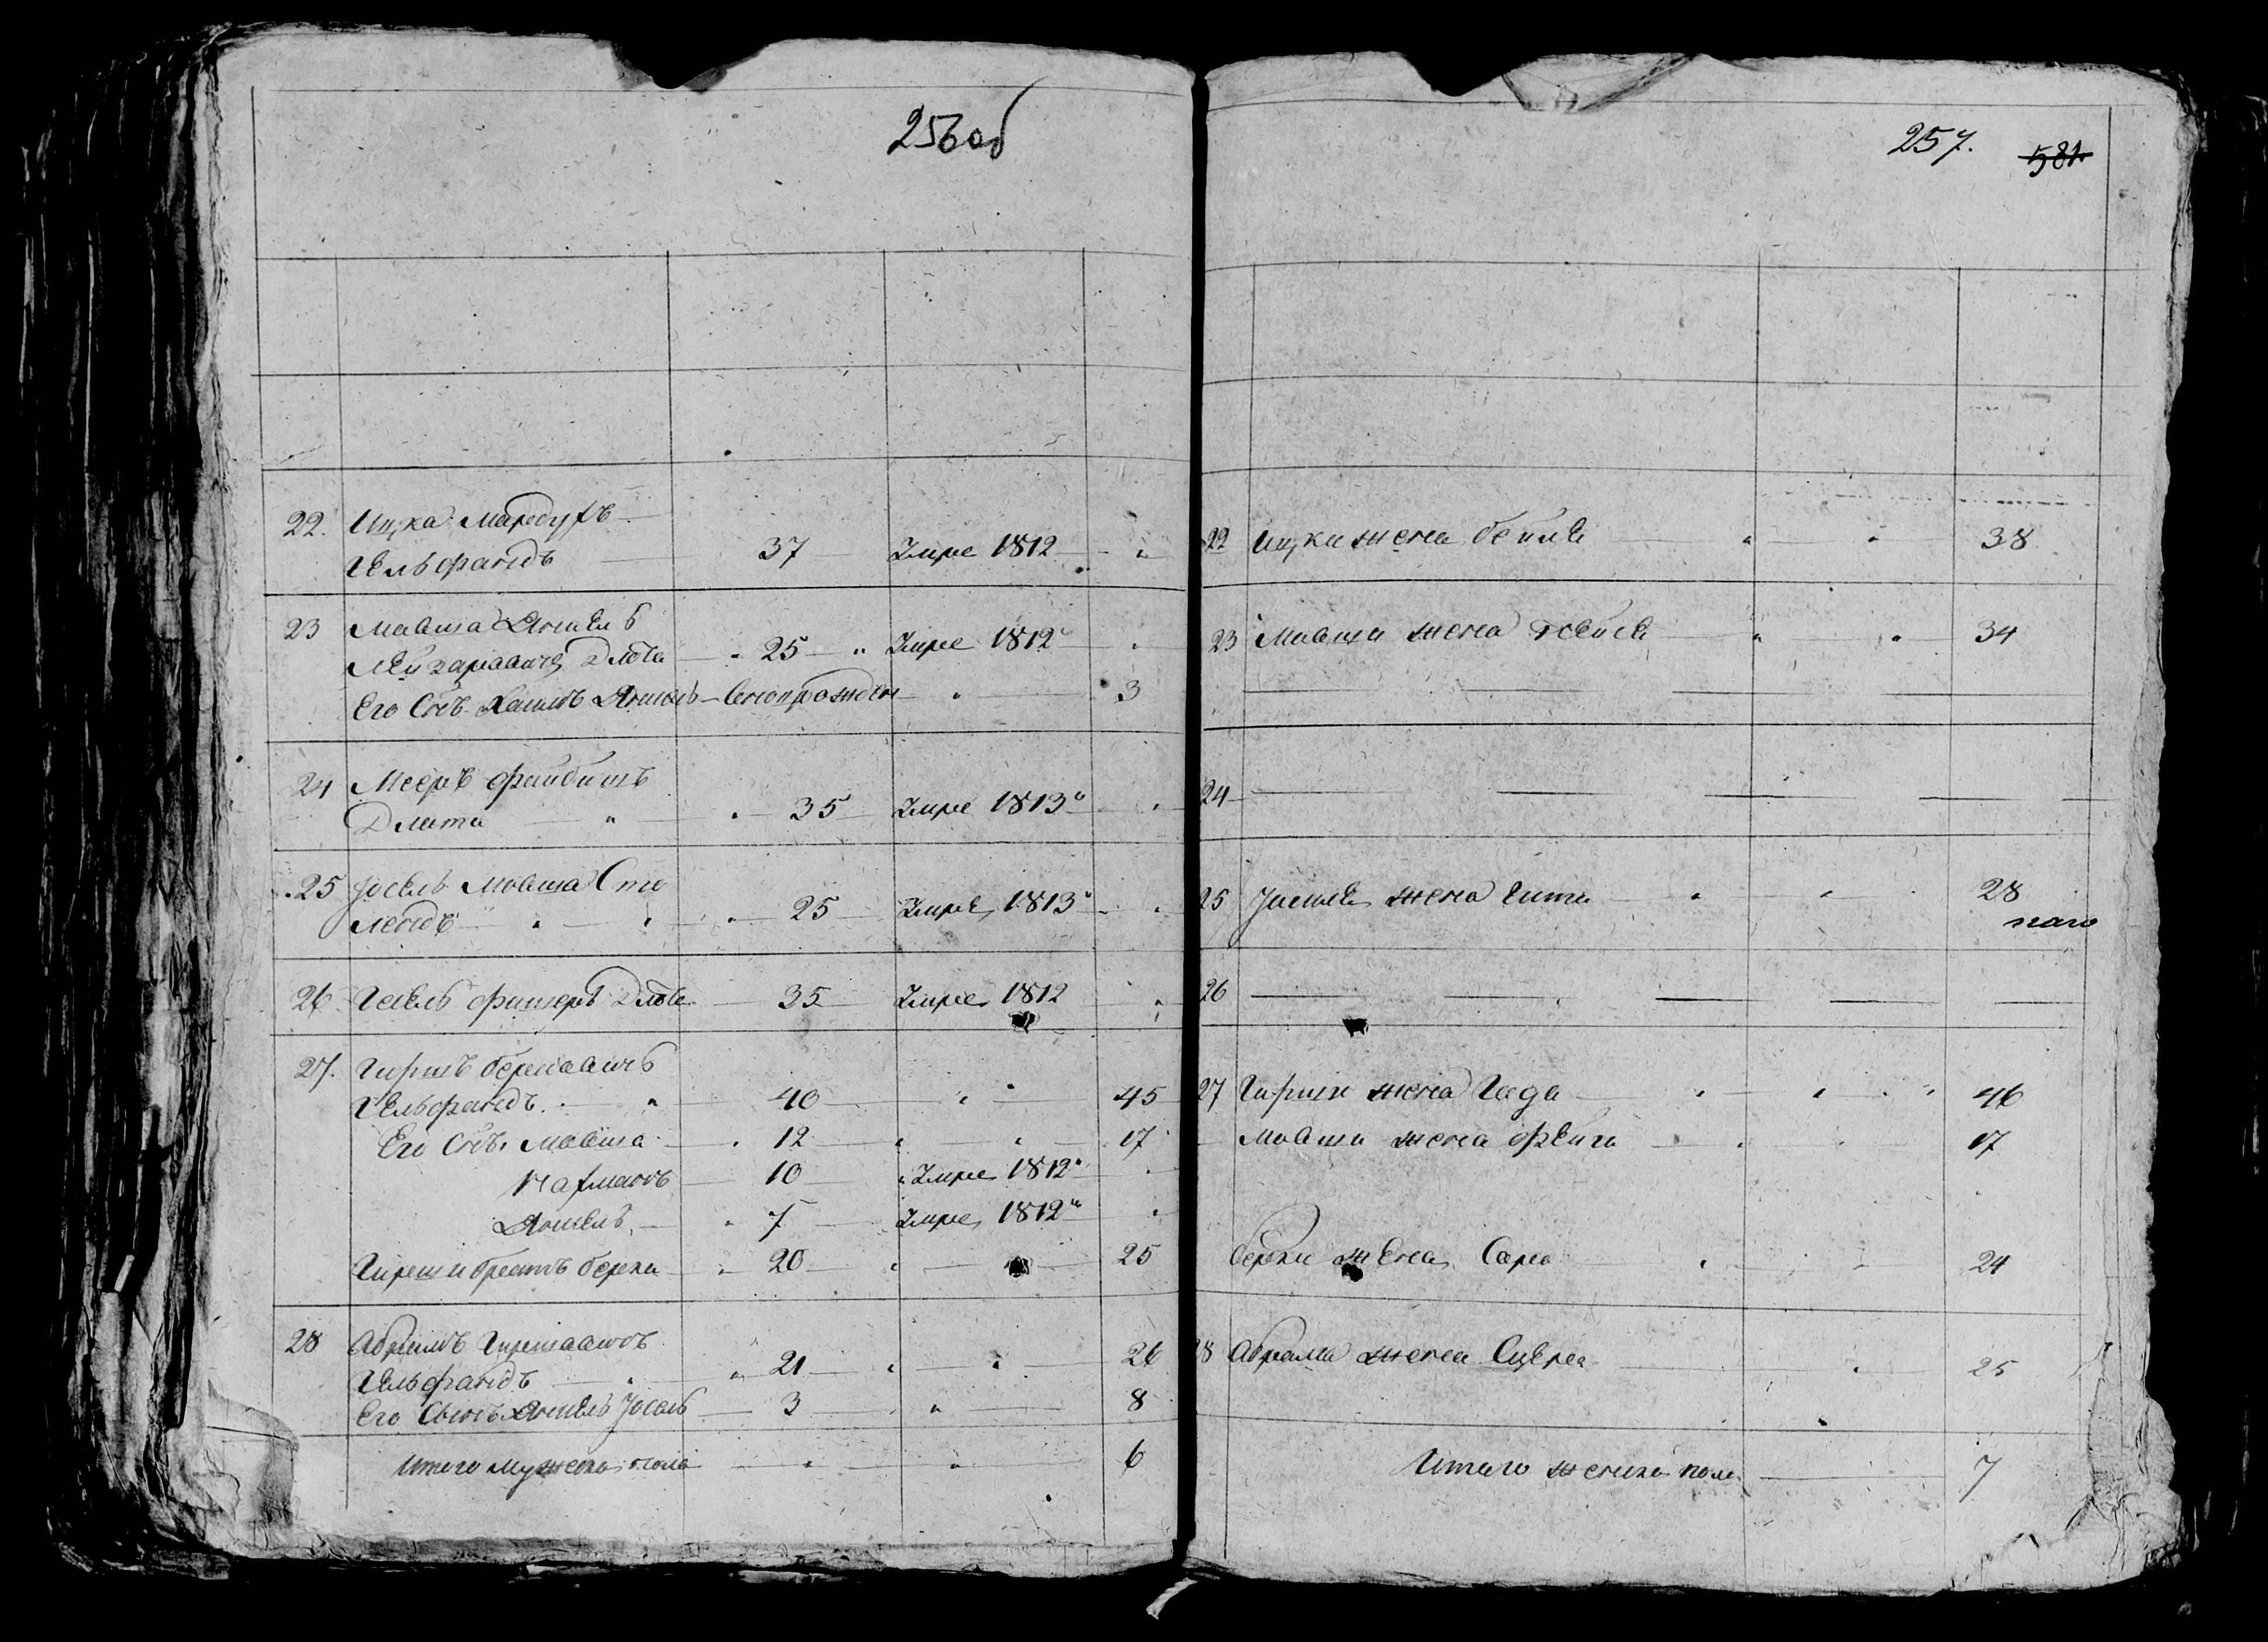 256 об
22. Ицка Мардухъ
Гельфандъ 37 Умре 1812 "
23 Мавша Аншель
Лейзаровичъ 25 " Умре 1812 "
Его Снъ Аншель Вновьрожден " 3
24 Мееръ Файбишъ
" 35 Умре 1813 "
25 Іосель Мавша Сто
ледъ " " 25 Умре 1813 "
26 Гесель Фишеръ 35 Умре 1812 "
27. Гиршъ Берковичъ
Гельфандъ " 40 " " 45
Его Снъ Мавша 12 " " 17
Нахманъ 10 " Умре 1812 "
Аншель 7 Умре 1812 "
Гирши братъ Берка 20 " " 25
28 Абрамъ Гиршовичъ
Гельфандъ " 21 " " 26
Его Сынъ Аншель Іосель 3 " 8
Итого мужеска пола " " 6
257. 581
22 Ицки жена Бейля " " 38
23 Мавши жена " " 34
24
25 Іоселя жена Гита " " 28
26
27 Гирши жена Года " " " 46
Мавши жена Фейга " 17
Берки жена Сара " 24
28 Абрама жена " 25
Итого женска пола 7